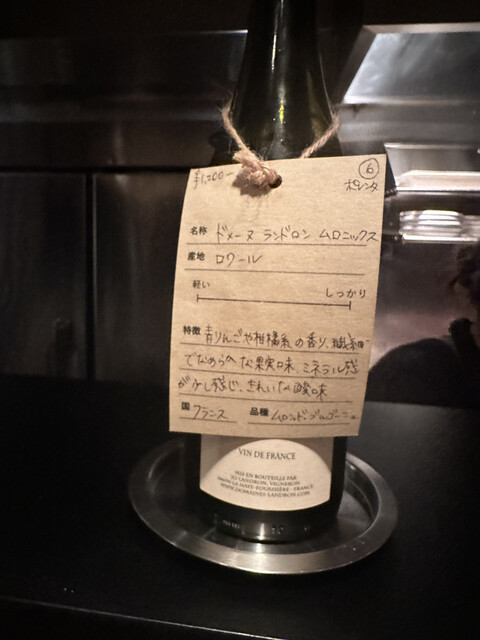 ¥1,200-
⑥
ポレンタ
名称 ドメーヌ ランドロン ムロニックス
産地 ロワール
軽い しっかり
特徴 青りんごや柑橘系の香り、繊細
でなめらかな果実味、ミネラル感
が少し感じ、きれいな酸味
国 フランス 品種 ムロンド・ブルゴーニュ
VIN DE FRANCE
MIS EN BOUTEILLE PAR
JO LANDRON, VIGNERON
LA HAYE-FOUASSIÈRE - FRANCE
WWW.DOMAINES-LANDRON.COM